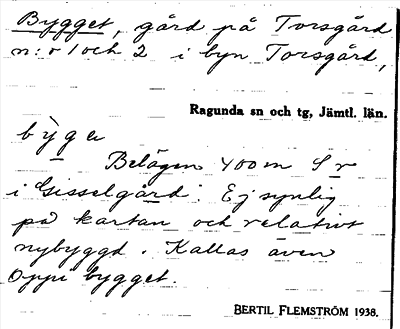 Bygget, gård på Torsgård
n:o 1 och 2 i byn Torsgård,
Ragunda sn och tg, Jämtl. län.
by̆ge
Belägen 400 m S v
i Gisselgård. Ej synlig
på kartan och relativt
nybyggd. Kallas även
Oppi bygget.
BERTIL FLEMSTRÖM 1938.